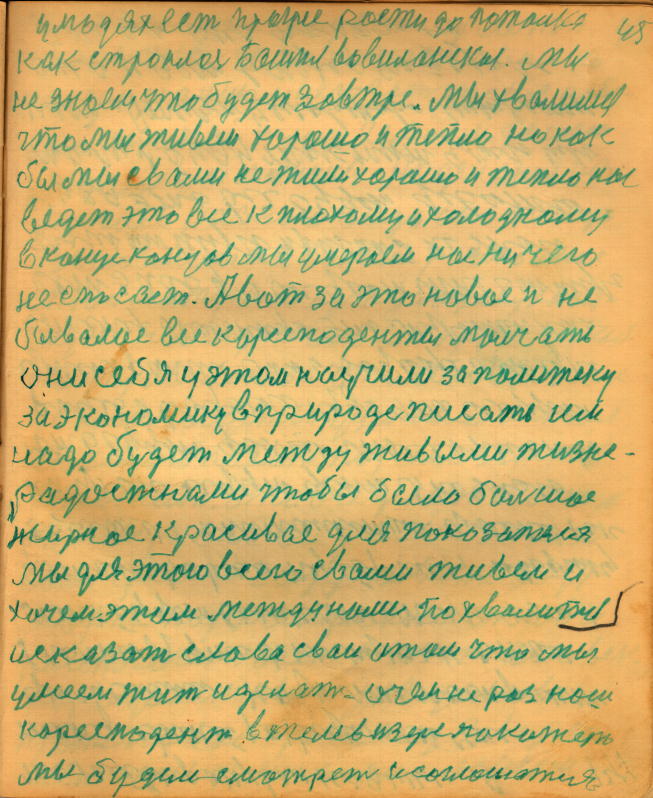 умодях ест прагие рости до потолка 45
как строилас Башня вовилонская. Мы
не знаем что будет завтре. Мы хвалимся
что мы живем хорошо и тепло но как
бы мы свами не жили хорошо и тепло нас
ведет это все к плохому и холодному
в конце концов мы умераем нас ничего
не спосает. А вот за это новое и не
бывалое все кореподенты молчать
они себя у этом научили за политеку
за экономику в природе писать им
надо будет между живыми жизне-
радостнами чтобы было болшое
жирное красивае для показания
мы для этого всего свами живем и
хочем этим между нами похвалится
исказат слова сваи отом что мы
умеем жит и делат. очем не раз наш
коресподент в телевизере покожеть
мы будем смотрет и соглошатися